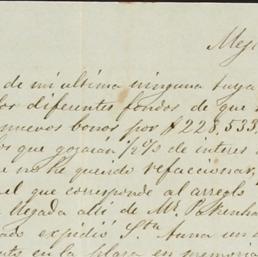 Meji
de mi ultima ninguna tuya
los diferentes fondos de que
nuevos bonos por $223,533
os que gozarán ½ % de interes
no he querido refaccionar,
el que corresponde al arreglo
llegada alli de Mr. Pakenha
ado expidió Sta Anna un d
en la plaza en memoria